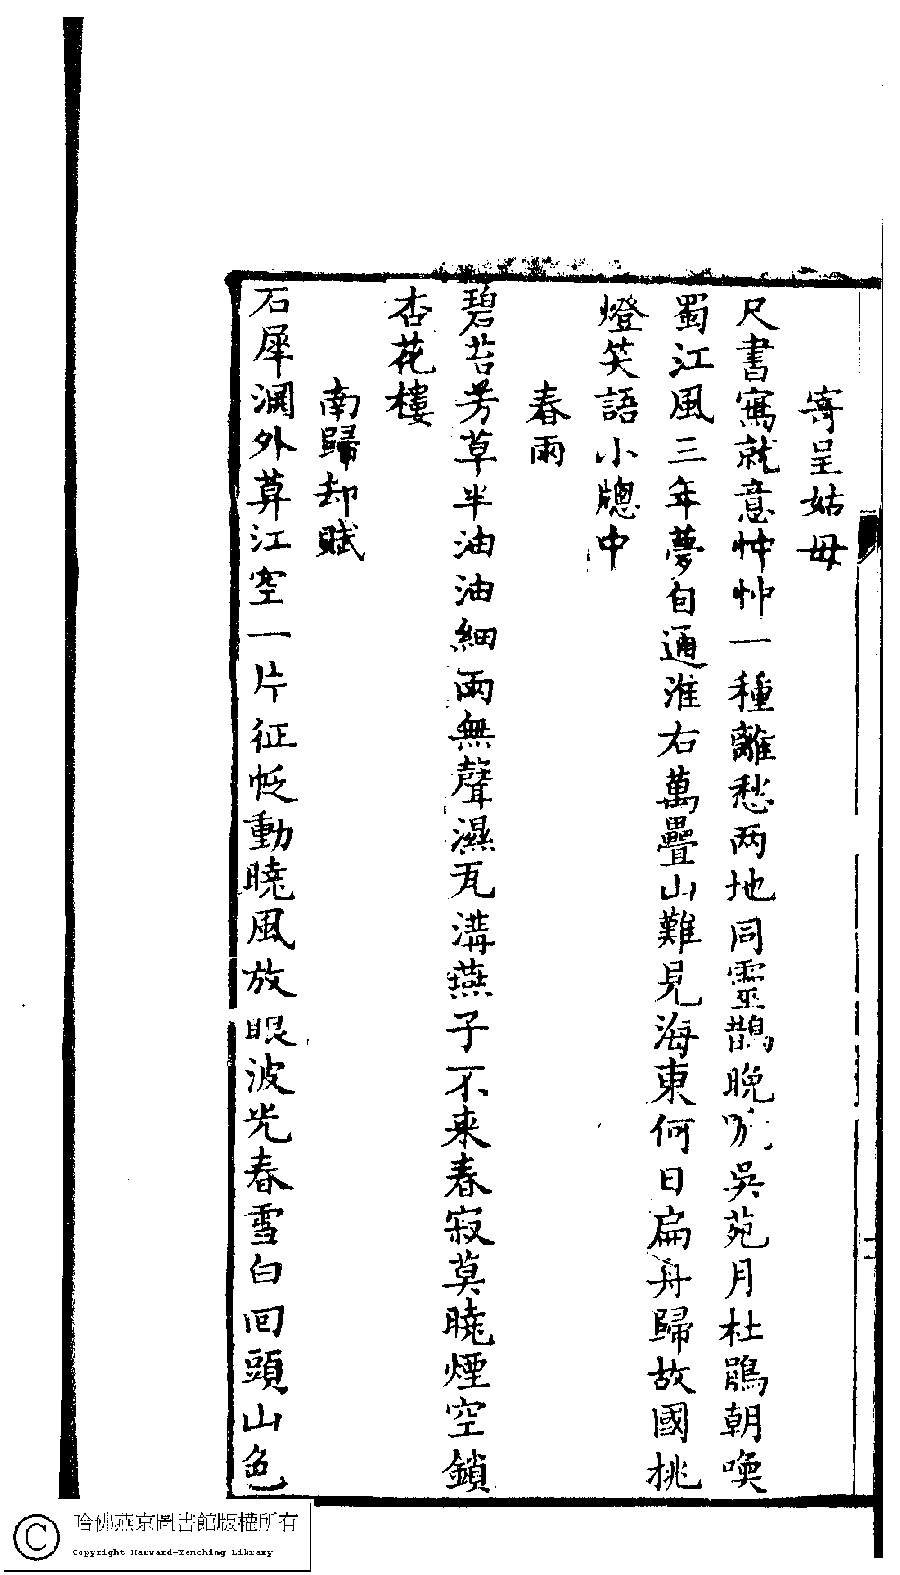 寄呈姑母
尺書寫就意忡忡一種離愁两地同靈鵲晚吳苑月杜鵑朝喚
蜀江風三年夢自通淮右萬疊山難見海東何日扁舟歸故國挑
燈笑語小牕中
春雨
碧苔芳草半油油細雨無聲濕瓦溝燕子不来春寂莫曉煙空鎖
杏花樓
南歸却賦
石犀瀾外算江空一片征帆動曉風放眼波光春雪白回頭山色
哈佛燕京圖書館版權所有
Copyright Harvard-Yenching Library